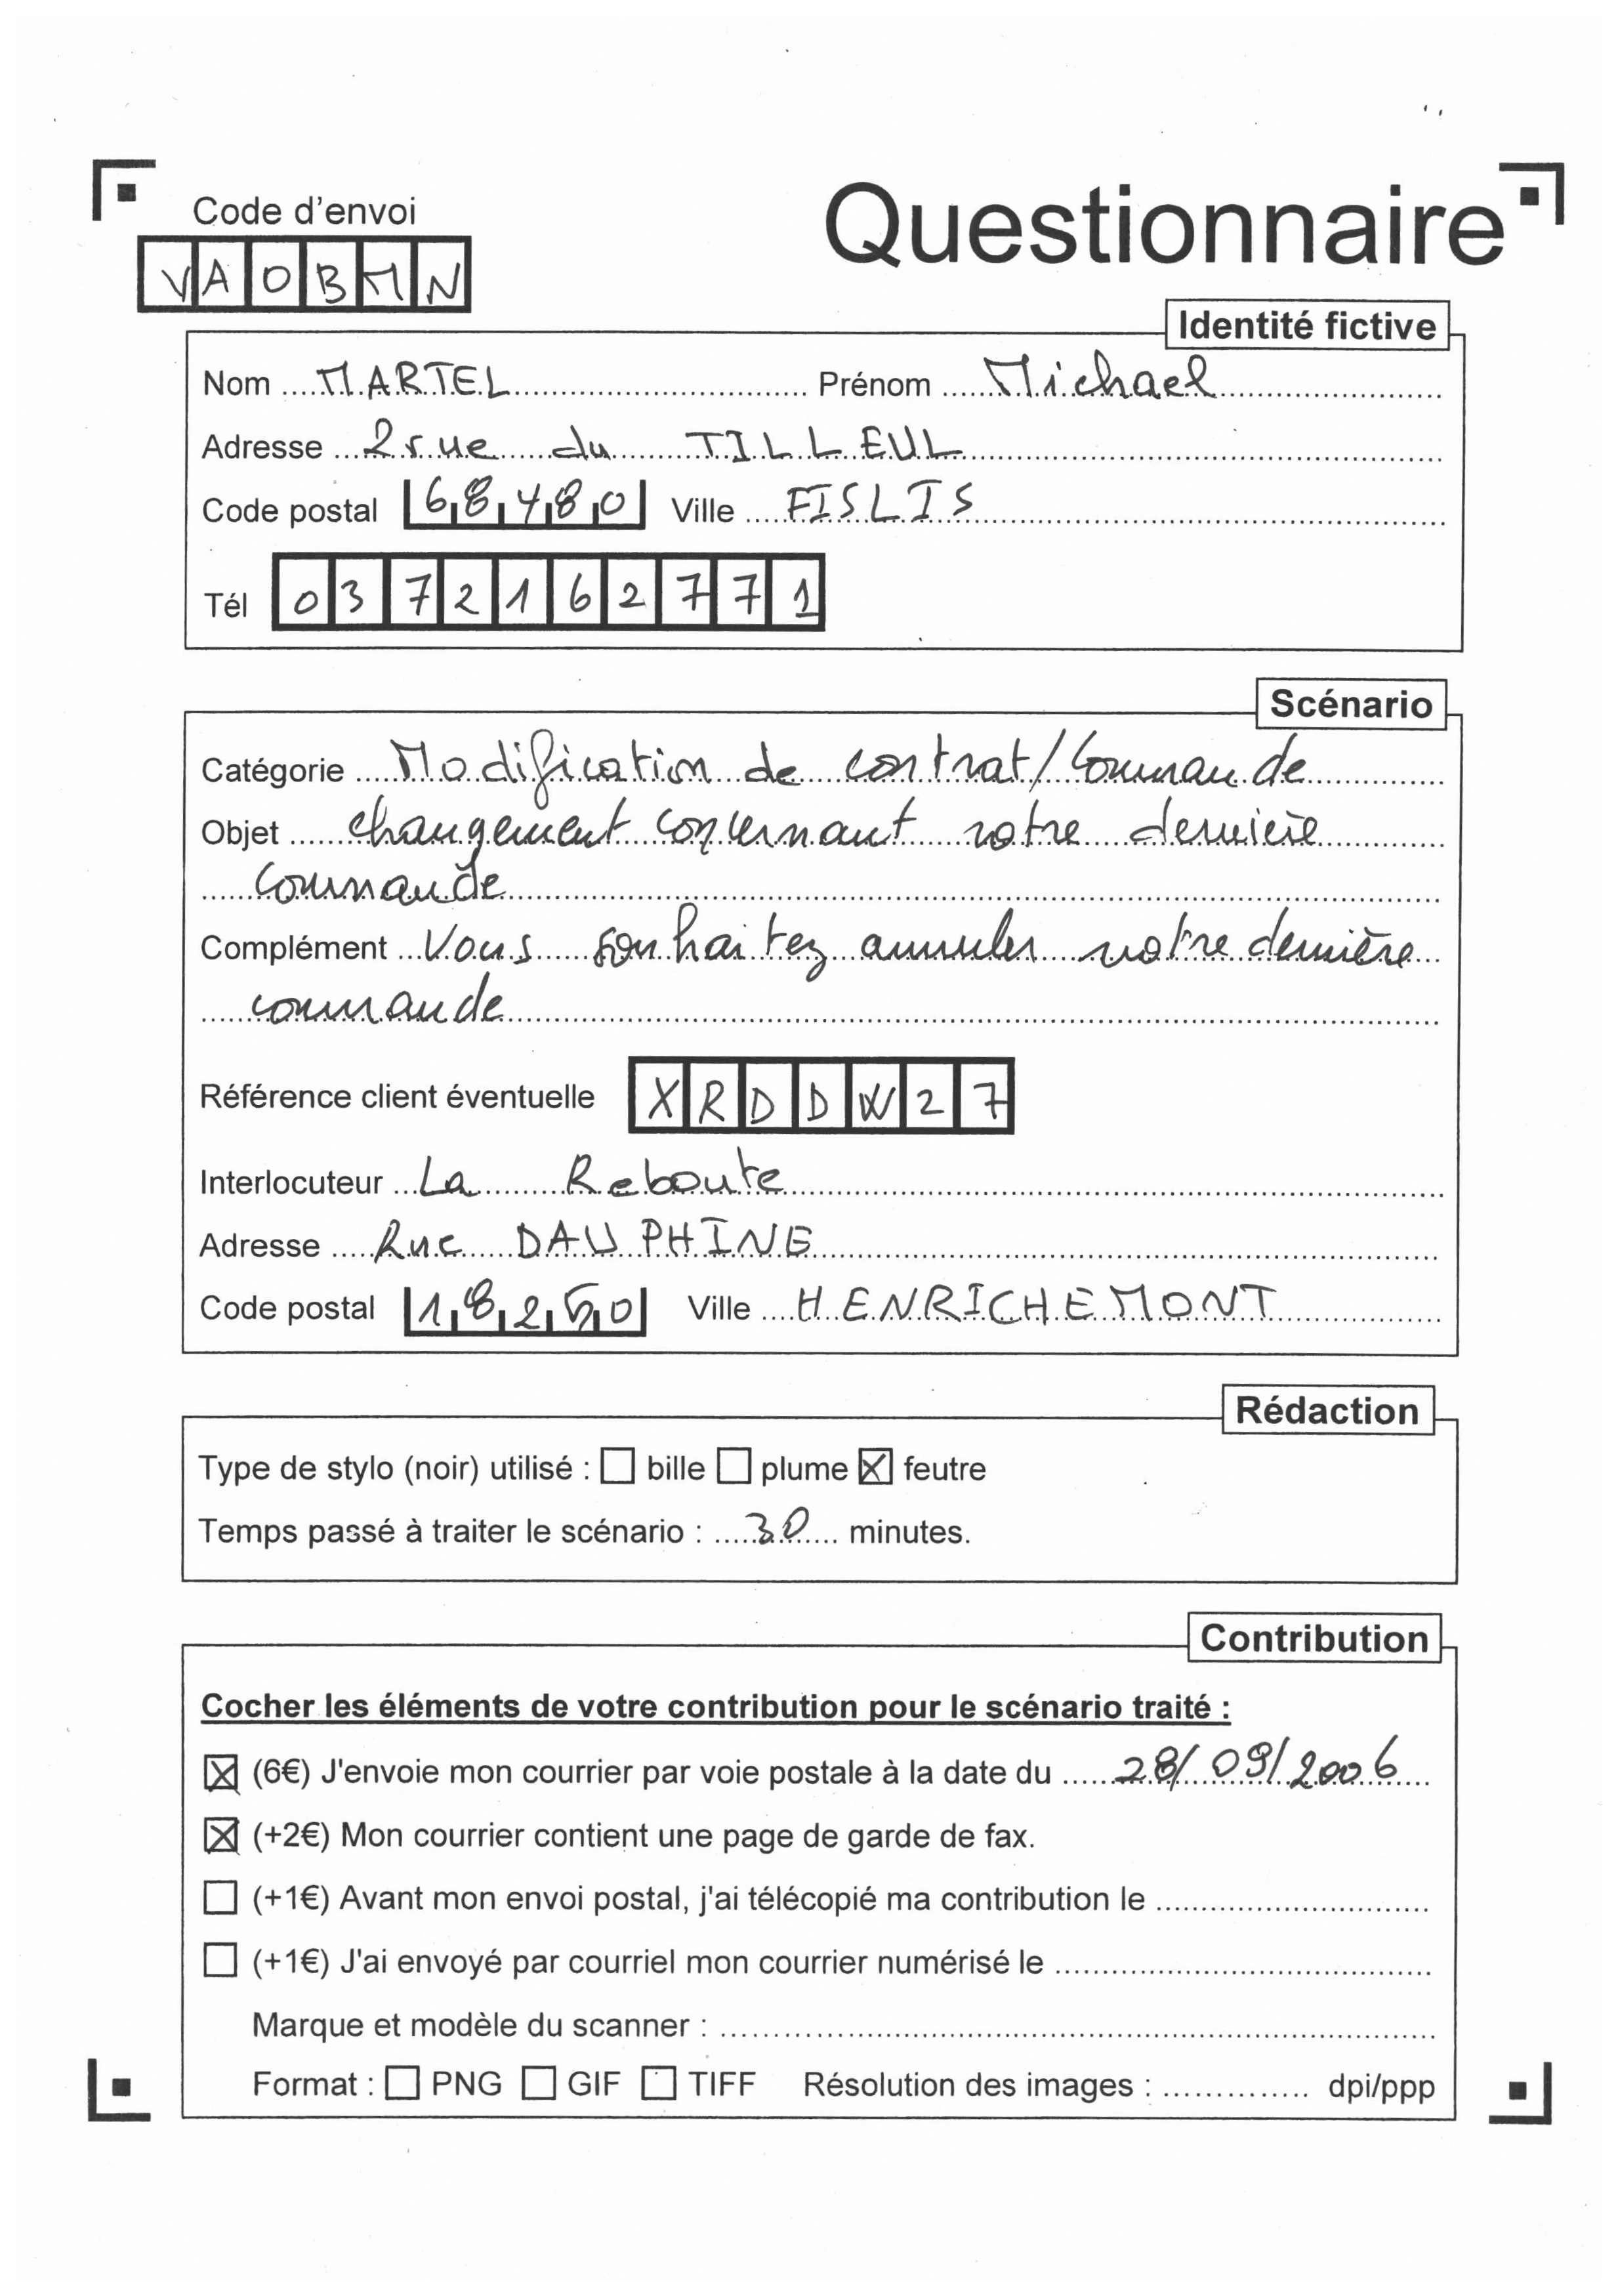 Code d'envoi
Questionnaire
VAOBMN
Identité fictive
Nom MARTEL Prénom Michael
Adresse 2 rue du TILLEUL
Code postal 68480 Ville FISLIS
Tél 0372162771
Scénario
Catégorie Modification de contrat/Commande
Objet changement concernant votre dernière
Commande
Complément Vous souhaitez annuler votre dernière
commande
Référence client éventuelle XRDDW27
Interlocuteur La Reboute
Adresse Rue DAUPHINE
Code postal 18250 Ville HENRICHEMONT
Rédaction
Type de stylo (noir) utilisé : ☐ bille ☐ plume ☒ feutre
Temps passé à traiter le scénario : 30 minutes.
Contribution
Cocher les éléments de votre contribution pour le scénario traité :
☒ (6€) J'envoie mon courrier par voie postale à la date du 28/09/2006
☒ (+2€) Mon courrier contient une page de garde de fax.
☐ (+1€) Avant mon envoi postal, j'ai télécopié ma contribution le
☐ (+1€) J'ai envoyé par courriel mon courrier numérisé le
Marque et modèle du scanner :
Format : ☐ PNG ☐ GIF ☐ TIFF Résolution des images : dpi/ppp